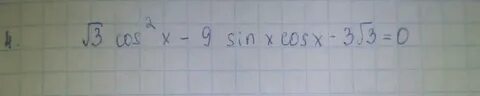 4. √3 cos²x - 9 sin x cos x - 3√3 = 0